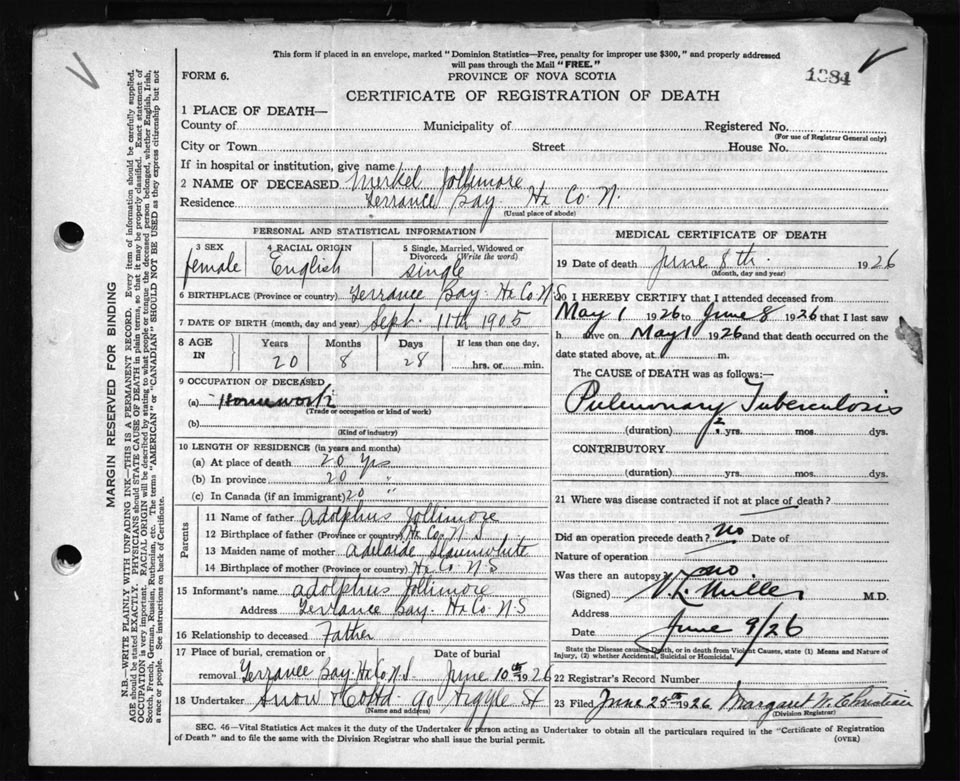 This form if placed in an envelope, marked "Dominion Statistics—Free, penalty for improper use $300," and properly addressed
will pass through the Mail "FREE."
FORM 6.
PROVINCE OF NOVA SCOTIA
1384
CERTIFICATE OF REGISTRATION OF DEATH
1 PLACE OF DEATH—
County of Municipality of Registered No.
(For use of Registrar General only)
City or Town Street House No.
If in hospital or institution, give name
2 NAME OF DECEASED Merkel Jollimore
Residence Terrance Bay Hx Co. N.
(Usual place of abode)
PERSONAL AND STATISTICAL INFORMATION
3 SEX 4 RACIAL ORIGIN 5 Single, Married, Widowed or
Divorced (Write the word)
female English single
6 BIRTHPLACE (Province or country) Terrance Bay Hx Co N S
7 DATE OF BIRTH (month, day and year) Sept. 11th 1905
8 AGE IN Years Months Days If less than one day,
20 8 28 hrs. or min.
9 OCCUPATION OF DECEASED
(a) Homework
(Trade or occupation or kind of work)
(b)
(Kind of industry)
10 LENGTH OF RESIDENCE (in years and months)
(a) At place of death 20 yrs
(b) In province 20 "
(c) In Canada (if an immigrant) 20 "
Parents
11 Name of father Adolphus Jollimore
12 Birthplace of father (Province or country) Hx Co. N. S
13 Maiden name of mother Adelaide Slaunwhite
14 Birthplace of mother (Province or country) Hx Co N S
15 Informant's name Adolphus Jollimore
Address Terrance Bay Hx Co N S
16 Relationship to deceased Father
17 Place of burial, cremation or removal Date of burial
Terrance Bay Hx Co N.S. June 10th 1926
18 Undertaker Snow 90 Argyle St
(Name and address)
MEDICAL CERTIFICATE OF DEATH
19 Date of death June 8th 1926
(Month, day and year)
20 I HEREBY CERTIFY that I attended deceased from
May 1 1926 to June 8 1926 that I last saw
h alive on May 10 1926 and that death occurred on
date stated above, at m.
The CAUSE of DEATH was as follows:—
Pulmonary Tuberculosis
(duration) 2 yrs. mos. dys.
CONTRIBUTORY
(duration) yrs. mos. dys.
21 Where was disease contracted if not at place of death?
Did an operation precede death? no Date of
Nature of operation
Was there an autopsy? no
(Signed) Miller M.D.
Address
Date June 9/26
State the Disease causing Death, or in death from Violent Causes, state (1) Means and Nature of
Injury, (2) whether Accidental, Suicidal or Homicidal.
22 Registrar's Record Number
23 Filed June 25th 1926 Margaret W. Christian
(Division Registrar)
SEC. 46—Vital Statistics Act makes it the duty of the Undertaker or person acting as Undertaker to obtain all the particulars required in the "Certificate of Registration
of Death" and to file the same with the Division Registrar who shall issue the burial permit.
(OVER)
MARGIN RESERVED FOR BINDING
N.B.—WRITE PLAINLY WITH UNFADING INK—THIS IS A PERMANENT RECORD. Every item of information should be carefully supplied.
AGE should be stated EXACTLY. PHYSICIANS should STATE CAUSE OF DEATH in plain terms, so that it may be properly classified. Exact statement of
OCCUPATION is very important. RACIAL ORIGIN will be described by stating to what people or tongue the deceased person belonged, whether English, Irish,
Scotch, French, German, Russian, Ruthenian, etc. The terms "AMERICAN" or "CANADIAN" SHOULD NOT BE USED as they express citizenship but not
a race or people. See instructions on back of Certificate.